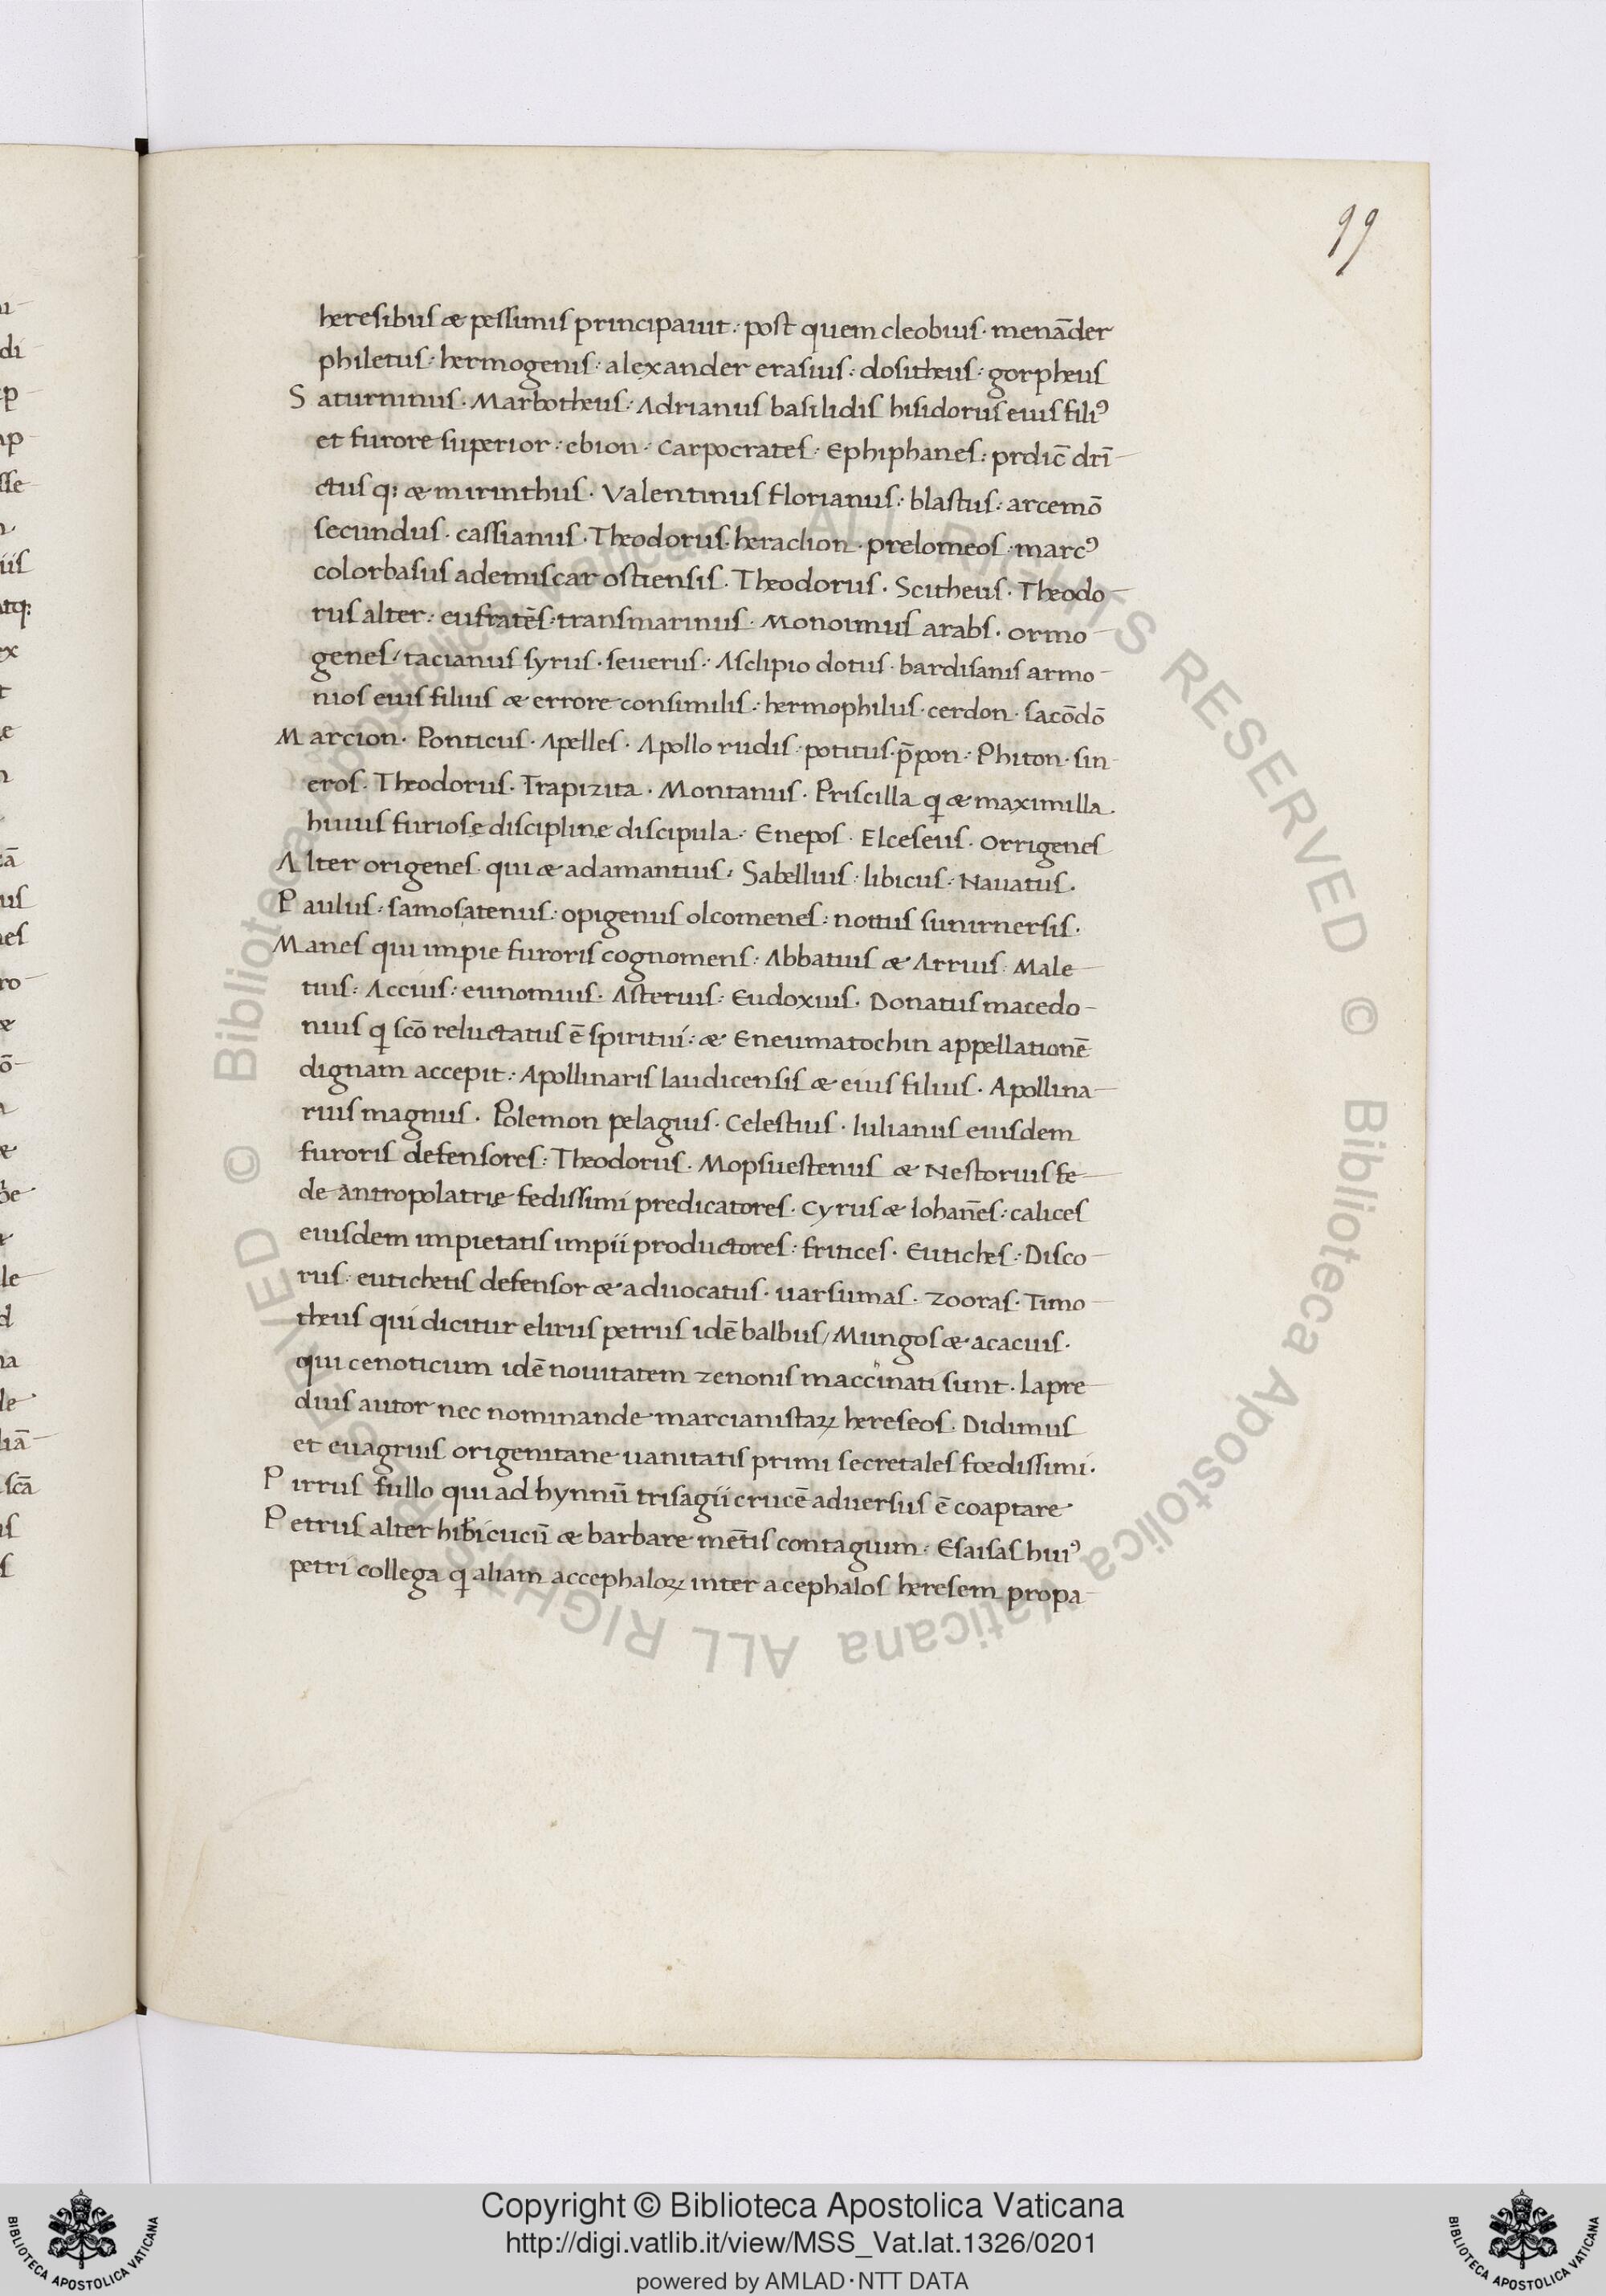 99
heresibus æ pessimis principauit : post quem cleobius · menāder
philetus : hermogenis : alexander erasius : dositheus : gorpheus
Saturninus · Marbotheus : Adrianus basilidis hisidorus eius filiꝰ
et furore superior : ebion : carpocrates : Ephiphanes : prdic̄ drī
ctus q: æ mirinthus · Valentinus florianus : blastus : arcemō
secundus · cassianus · Theodorus · heraclion · prelomeos · marcꝰ
colorbasus ademiscar ostiensis · Theodorus · Scitheus · Theodo
rus alter : eufratēs : transmarinus · Monoimus arabs · ormo
genes / tacianus syrus · seuerus : Asclipio dotus · bardisanis armo
nios eius filius æ errore consimilis : hermophilus · cerdon · sacōdō
Marcion · Ponticus · Apelles · Apollo rudis · potitus · p̄pon : Phiton · sin
eros · Theodorus · Trapizita · Montanus · Priscilla q æ maximilla ·
huius furiosę disciplinę discipula : Enepos · Elceseus · orrigenes
Alter origenes qui æ adamantius : Sabellius : libicus : Nauatus ·
Paulus : samosatenus : opigenus olcomenes : nottus sunirnersis ·
Manes qui impie furoris cognomens : Abbatius æ Arrius : Male
tius : Accius : eunomius · Asterius : Eudoxius · Donatus macedo
nius q scō reluctatus ē spiritui : æ Eneumatochin appellationē
dignam accepit : Apollinaris laudicensis æ eius filius · Apollina
rius magnus · Polemon pelagius · Celestius · Iulianus eiusdem
furoris defensores : Theodorus · Mopsuestenus æ Nestorius fe
de antropolatrię fedissimi predicatores · Cyrus æ Iohan̄es : calices
eiusdem impietatis impii productores : fritices · Eutiches : Disco
rus : eutichetis defensor æ aduocatus · uarsumas · zooras · Timo
theus qui dicitur elirus petrus idē balbus / Mungos æ acacius ·
qui cenoticum idē nouitatem zenonis maccinati sunt · lapre
dius autor nec nominande marcianistaꝝ hereseos · Didimus
et euagrius origenitane uanitatis primi secretales fœdissimi ·
Pirrus fullo qui ad hynnū trisagii crucē aduersus ē coaptare
Petrus alter hibicucū æ barbare mētis contagium : Esaisas huiꝰ
petri collega q aliam accephaloꝝ inter acephalos heresem propa
© Biblioteca Apostolica Vaticana ALL RIGHTS RESERVED © Biblioteca Apostolica Vaticana ALL RIGHTS RESERVED
Copyright © Biblioteca Apostolica Vaticana
http://digi.vatlib.it/view/MSS_Vat.lat.1326/0201
powered by AMLAD·NTT DATA
BIBLIOTECA APOSTOLICA VATICANA
BIBLIOTECA APOSTOLICA VATICANA